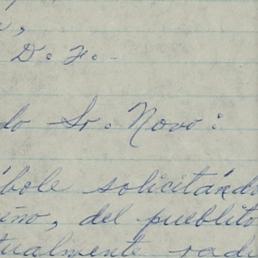 D. F.-
do Sr. Novo:
bole solicitándo
eño, del pueblito
tualmente radi